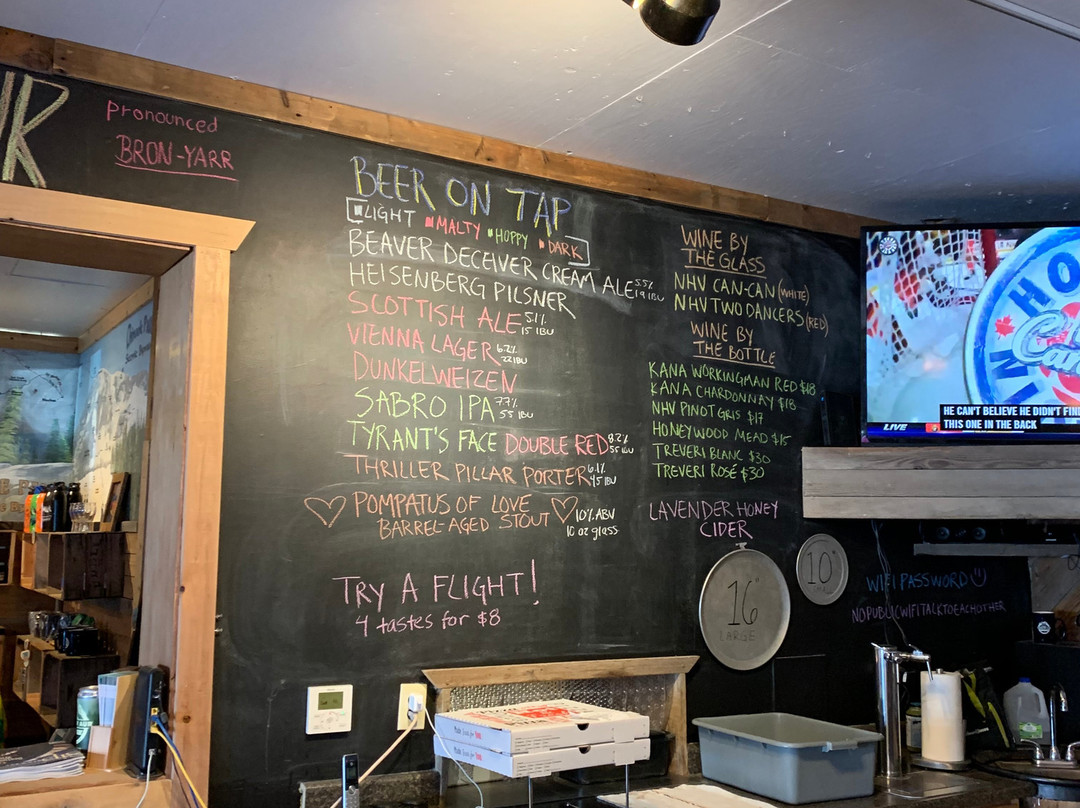 Pronounced
BRON-YARR
BEER ON TAP
LIGHT MALTY HOPPY DARK
BEAVER DECEIVER CREAM ALE 5.5% 19 IBU
HEISENBERG PILSNER
SCOTTISH ALE 5.1% 15 IBU
VIENNA LAGER 6.2% 22 IBU
DUNKELWEIZEN
SABRO IPA 7.7% 55 IBU
TYRANT'S FACE DOUBLE RED 8.2% 55 IBU
THRILLER PILLAR PORTER 6.1% 45 IBU
POMPATUS OF LOVE
BARREL-AGED STOUT 10% ABV
10 oz glass
TRY A FLIGHT!
4 tastes for $8
WINE BY
THE GLASS
NHV CAN-CAN (WHITE)
NHV TWO DANCERS (RED)
WINE BY
THE BOTTLE
KANA WORKINGMAN RED $18
KANA CHARDONNAY $18
NHV PINOT GRIS $17
HONEYWOOD MEAD $15
TREVERI BLANC $30
TREVERI ROSÉ $30
LAVENDER HONEY
CIDER
16"
LARGE
10"
WIFI PASSWORD
NOPUBLICWIFITALKTOEACHOTHER
HE CAN'T BELIEVE HE DIDN'T FIND
THIS ONE IN THE BACK
LIVE